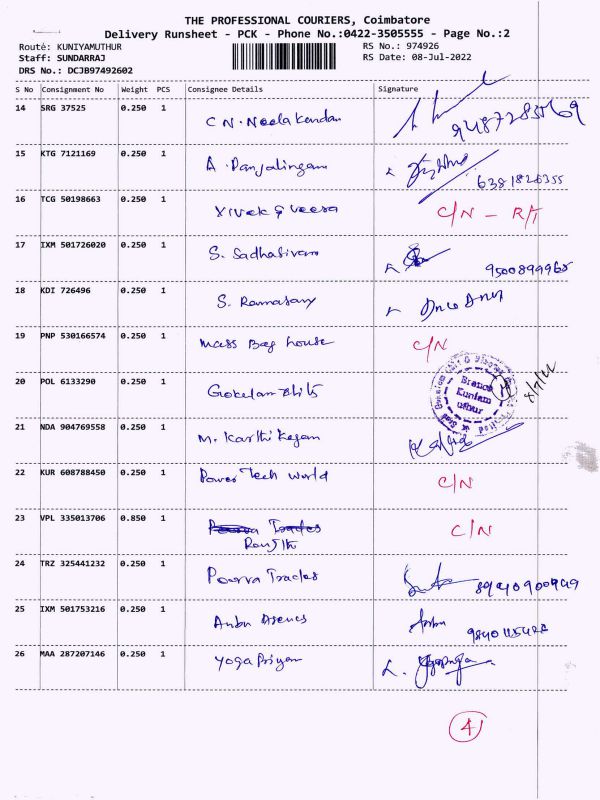 THE PROFESSIONAL COURIERS, Coimbatore
Delivery Runsheet - PCK - Phone No.:0422-3505555 - Page No.:2
Route: KUNIYAMUTHUR RS No.: 974926
Staff: SUNDARRAJ RS Date: 08-Jul-2022
DRS No.: DCJB97492602
S No Consignment No Weight PCS Consignee Details Signature
14 SRG 37525 0.250 1 C N. Neela Kandan
15 KTG 7121169 0.250 1 A. Panjalingam 6381826355
16 TCG 50198663 0.250 1 Vivek & Veera C/N - R/T
17 IXM 501726020 0.250 1 S. Sadhasivam 9500899965
18 KDI 726496 0.250 1 S. Ramasamy
19 PNP 530166574 0.250 1 Mass Bag house C/N
20 POL 6133290 0.250 1 8/7/22
Branch
Kuniam
uthur
21 NDA 904769558 0.250 1 M. Karthi Keyan
22 KUR 608788450 0.250 1 Power Tech World C/N
23 VPL 335013706 0.850 1 Poorva Trades C/N
Ranjith
24 TRZ 325441232 0.250 1 Poorva Trades
25 IXM 501753216 0.250 1 Anbu
26 MAA 287207146 0.250 1 Yoga Priyan
4